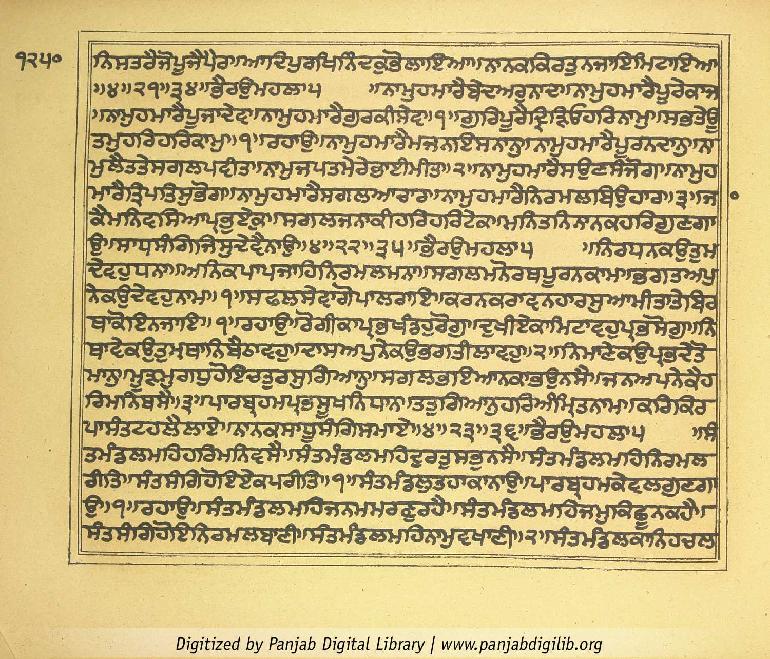 ੧੨੫੦
ਨਿਸਤਰੈਜੋਪੂਜੈਪੈਰਾ॥ਆਦਿਪੁਰਖਿਨਿੰਦਕੁਭੋਲਾਇਆ॥ਨਾਨਕਕਿਰਤੁਨਜਾਇਮਿਟਾਇਆ
॥੪॥੨੧॥੩੪॥ਭੈਰਉਮਹਲਾ੫ ॥ਨਾਮੁਹਮਾਰੈਬੇਦਅਰੁਨਾਦ॥ਨਾਮੁਹਮਾਰੈਪੂਰੇਕਾਜ
॥ਨਾਮੁਹਮਾਰੈਪੂਜਾਦੇਵ॥ਨਾਮੁਹਮਾਰੈਗੁਰਕੀਸੇਵ॥੧॥ਗੁਰਿਪੂਰੈਦ੍ਰਿੜਿਓਹਰਿਨਾਮੁ॥ਸਭਤੇਊ
ਤਮੁਹਰਿਹਰਿਕਾਮੁ॥੧॥ਰਹਾਉ॥ਨਾਮੁਹਮਾਰੈਮਜਨਇਸਨਾਨੁ॥ਨਾਮੁਹਮਾਰੈਪੂਰਨਦਾਨੁ॥ਨਾ
ਮੁਲੈਤਤੇਸਗਲਪਵੀਤ॥ਨਾਮੁਜਪਤਮੇਰੇਭਾਈਮੀਤ॥੨॥ਨਾਮੁਹਮਾਰੈਸਉਣਸੰਜੋਗ॥ਨਾਮੁਹ
ਮਾਰੈਤ੍ਰਿਪਤਿਸੁਭੋਗ॥ਨਾਮੁਹਮਾਰੈਸਗਲਆਚਾਰ॥ਨਾਮੁਹਮਾਰੈਨਿਰਮਲਬਿਉਹਾਰ॥੩॥ਜ
ਕੈਮਨਿਵਸਿਆਪ੍ਰਭੁਏਕੁ॥ਸਗਲਜਨਾਕੀਹਰਿਹਰਿਟੇਕ॥ਮਨਿਤਨਿਨਾਨਕਹਰਿਗੁਣਗਾ
ਉ॥ਸਾਧਸੰਗਿਜਿਸੁਦੇਵੈਨਾਉ॥੪॥੨੨॥੩੫॥ਭੈਰਉਮਹਲਾ੫ ॥ਨਿਰਧਨਕਉਤੁਮ
ਦੇਵਹੁਧਨਾ॥ਅਨਿਕਪਾਪਜਾਹਿਨਿਰਮਲਮਨਾ॥ਸਗਲਮਨੋਰਥਪੂਰਨਕਾਮ॥ਭਗਤਅਪੁ
ਨੇਕਉਦੇਵਹੁਨਾਮ॥੧॥ਸਫਲਸੇਵਾਗੋਪਾਲਰਾਇ॥ਕਰਨਕਰਾਵਨਹਾਰਸੁਆਮੀਤਾਤੇਬਿਰ
ਥਾਕੋਇਨਜਾਇ॥੧॥ਰਹਾਉ॥ਰੋਗੀਕਾਪ੍ਰਭਖੰਡਹੁਰੋਗੁ॥ਦੁਖੀਏਕਾਮਿਟਾਵਹੁਪ੍ਰਭਸੋਗੁ॥ਨਿ
ਥਾਵੇਕਉਤੁਮਥਾਨਿਬੈਠਾਵਹੁ॥ਦਾਸਅਪੁਨੇਕਉਭਗਤੀਲਾਵਹੁ॥੨॥ਨਿਮਾਣੇਕਉਪ੍ਰਭਦੇਤੋ
ਮਾਨੁ॥ਮੂੜਮੁਗਧੁਹੋਇਚਤੁਰਸੁਗਿਆਨੁ॥ਸਗਲਭਇਆਨਕਾਭਉਨਸੈ॥ਜਨਅਪਨੇਕੈਹ
ਰਿਮਨਿਬਸੈ॥੩॥ਪਾਰਬ੍ਰਹਮਪ੍ਰਭਸੂਖਨਿਧਾਨ॥ਤਤੁਗਿਆਨੁਹਰਿਅੰਮ੍ਰਿਤਨਾਮ॥ਕਰਿਕਿਰ
ਪਾਸੰਤਟਹਲੈਲਾਏ॥ਨਾਨਕਸਾਧੂਸੰਗਿਸਮਾਏ॥੪॥੨੩॥੩੬॥ਭੈਰਉਮਹਲਾ੫ ॥ਸੰ
ਤਮੰਡਲਮਹਿਹਰਿਮਨਿਵਸੈ॥ਸੰਤਮੰਡਲਮਹਿਦੁਰਤੁਸਭੁਨਸੈ॥ਸੰਤਮੰਡਲਮਹਿਨਿਰਮਲ
ਰੀਤਿ॥ਸੰਤਸੰਗਿਹੋਇਏਕਪਰੀਤਿ॥੧॥ਸੰਤਮੰਡਲੁਤਹਾਕਾਨਾਉ॥ਪਾਰਬ੍ਰਹਮਕੇਵਲਗੁਣਗਾ
ਉ॥੧॥ਰਹਾਉ॥ਸੰਤਮੰਡਲਮਹਿਜਨਮਮਰਣੁਰਹੈ॥ਸੰਤਮੰਡਲਮਹਿਜਮੁਕਿਛੂਨਕਹੈ॥
ਸੰਤਸੰਗਿਹੋਇਨਿਰਮਲਬਾਣੀ॥ਸੰਤਮੰਡਲਮਹਿਨਾਮੁਵਖਾਣੀ॥੨॥ਸੰਤਮੰਡਲਕਾਨਿਹਚਲ
Digitized by Panjab Digital Library | www.panjabdigilib.org